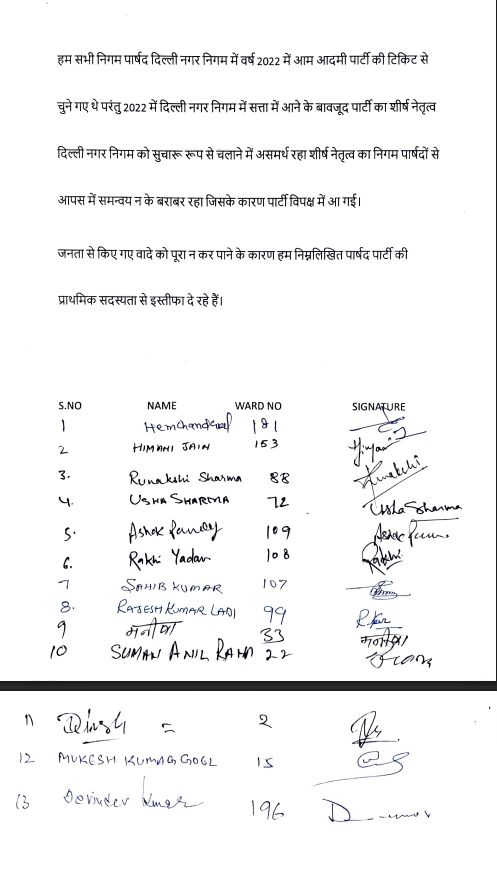 हम सभी निगम पार्षद दिल्ली नगर निगम में वर्ष 2022 में आम आदमी पार्टी की टिकिट से
चुने गए थे परंतु 2022 में दिल्ली नगर निगम में सत्ता में आने के बावजूद पार्टी का शीर्ष नेतृत्व
दिल्ली नगर निगम को सुचारू रूप से चलाने में असमर्थ रहा शीर्ष नेतृत्व का निगम पार्षदों से
आपस में समन्वय न के बराबर रहा जिसके कारण पार्टी विपक्ष में आ गई।
जनता से किए गए वादे को पूरा न कर पाने के कारण हम निम्नलिखित पार्षद पार्टी की
प्राथमिक सदस्यता से इस्तीफा दे रहे हैं।
S.NO NAME WARD NO SIGNATURE
1 181
2 HIMANI JAIN 153
3. Runakshi Sharma 88 Runakshi
4. USHA SHARMA 72 Usha Sharma
5. Ashok Pandey 109 Ashok
6. Rakhi Yadav 108 Rakhi
7 SAHIB KUMAR 107
8. RAJESH KUMAR LADI 99
9 मनीषा 33 मनीषा
10 SUMAN ANIL RANA 22
11 = 2
12 MUKESH KUMAR GOEL 15
13 Devinder Kumar 196